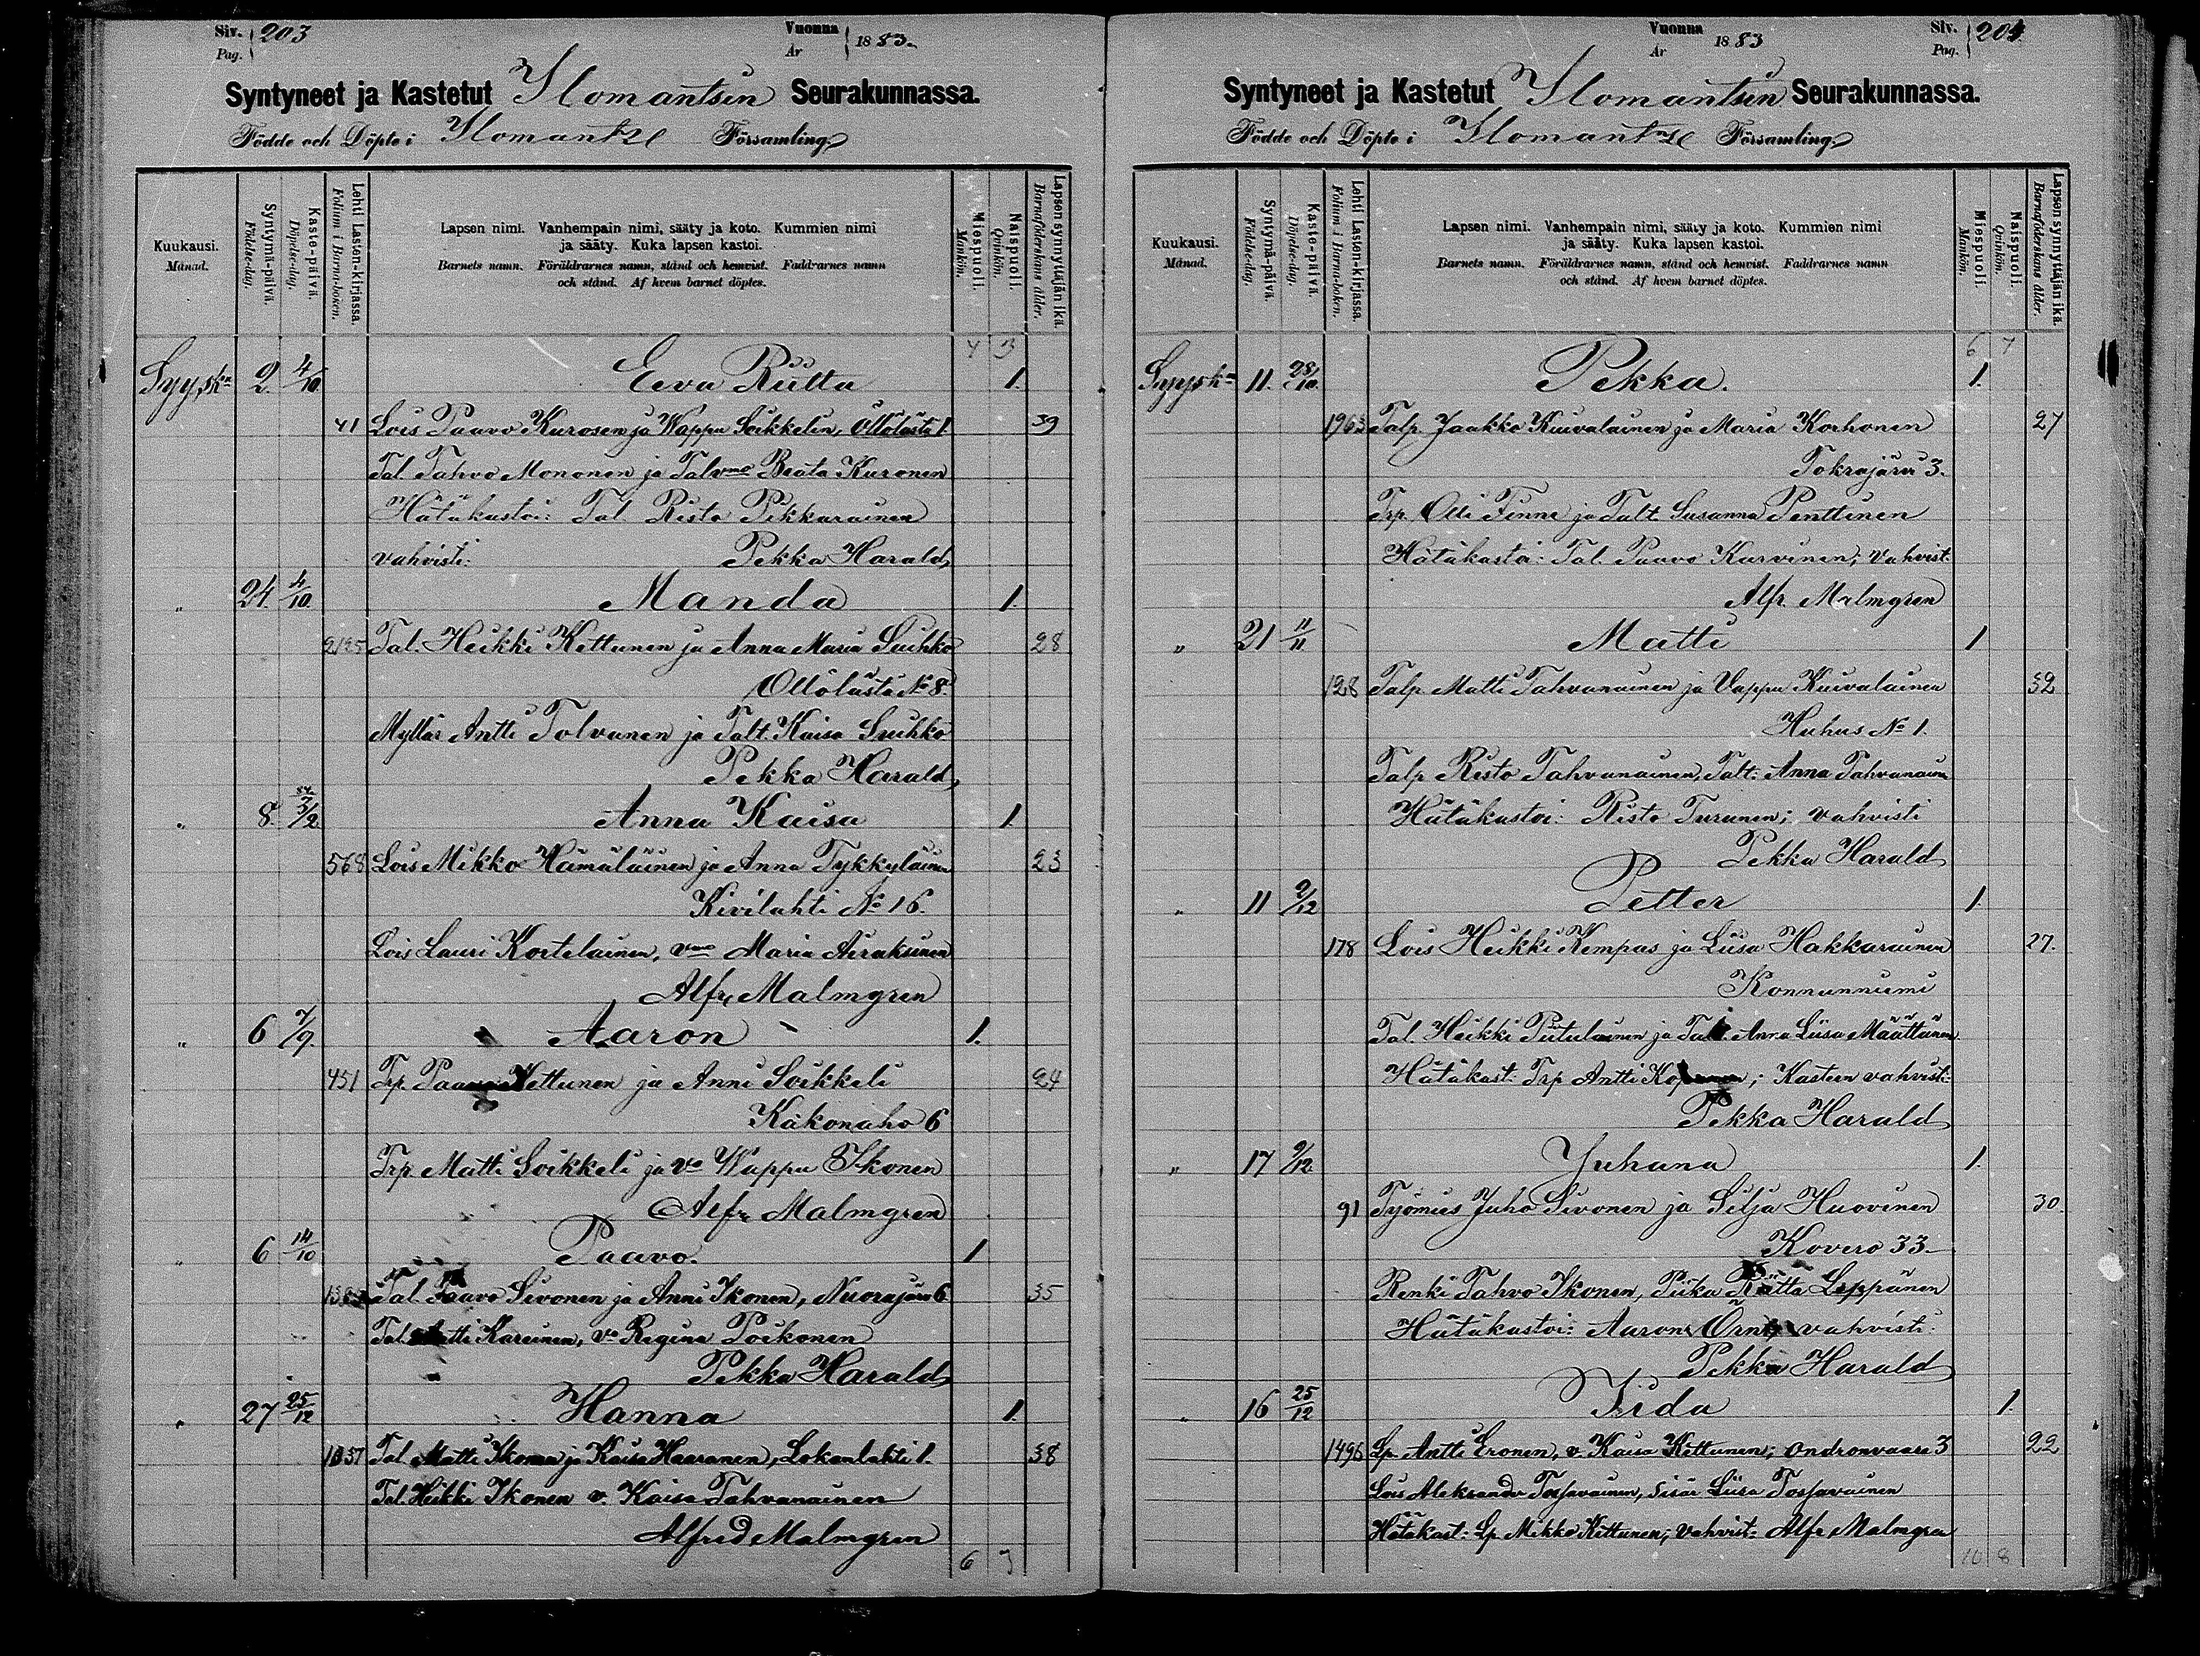 Siv. Pag. 203
Vuonna År 1883.
Syntyneet ja Kastetut Ilomantsin Seurakunnassa.
Födde och Döpte i Ilomantse Församling.
Kuukausi. Månad.
Syntymä-päivä. Födelse-dag.
Kaste-päivä. Döpelse-dag.
Lehti Lasten-kirjassa. Folium i Barna-boken.
Lapsen nimi. Vanhempain nimi, sääty ja koto. Kummien nimi
ja sääty. Kuka lapsen kastoi.
Barnets namn. Föräldrarnes namn, stånd och hemvist. Faddrarnes namn
och stånd. Af hvem barnet döptes.
Miespuoli. Mankön.
Naispuoli. Qvinkön.
Lapsen synnyttäjän ikä. Barnaföderskans ålder.
4 3
Syysk. 2. 4/10 Eeva Riitta 1.
41 Lois Paavo Kurosen ja Wappu Soikkelin, Ollölästä 1 39
Tal. Tahvo Mononen ja Talvmo Beata Kuronen
Hätäkastoi: Tal. Risto Pikkarainen
vahvisti: Pekka Harald
" 24. 4/10. Manda 1.
2125 Tal. Heikki Kettunen ja Anna Maria Suhko 28
Ollölästä No 8.
Mylläri Antti Tolvanen ja Talt. Kaisa Suhko
Pekka Harald
" 8. 84 3/2 Anna Kaisa 1.
568 Lois Mikko Hämäläinen ja Anna Tykkyläinen 23
Kivilahti No 16.
Lois Lauri Kortelainen, vmo Maria Airaksinen
Alfr Malmgren
" 6 7/9. Aaron 1.
451 Trp. Paavo Kettunen ja Anni Soikkeli 24
Käkonaho 6
Trp. Matti Soikkeli ja vo Wappu Ikonen
Alfr Malmgren
" 6 14/10 Paavo. 1
Tal. Paavo Sivonen ja Anni Ikonen, Nuorajärvi 6 35
Tal. Matti Kareinen, vo Regina Poikonen
Pekka Harald
" 27 25/12 Hanna 1.
1337 Tal. Matti Ikonen ja Kaisa Haaranen, Lokanlahti 1. 38
Tal. Heikki Ikonen v. Kaisa Tahvanainen
Alfred Malmgren
6
Vuonna År 1883
Siv. Pag. 204
Syntyneet ja Kastetut Ilomantsin Seurakunnassa.
Födde och Döpte i Ilomantse Församling.
Kuukausi. Månad.
Syntymä-päivä. Födelse-dag.
Kaste-päivä. Döpelse-dag.
Lehti Lasten-kirjassa. Folium i Barna-boken.
Lapsen nimi. Vanhempain nimi, sääty ja koto. Kummien nimi
ja sääty. Kuka lapsen kastoi.
Barnets namn. Föräldrarnes namn, stånd och hemvist. Faddrarnes namn
och stånd. Af hvem barnet döptes.
Miespuoli. Mankön.
Naispuoli. Qvinkön.
Lapsen synnyttäjän ikä. Barnaföderskans ålder.
6 7
Syysk. 11. 28/10. Pekka. 1.
1963 Talp. Jaakko Kuivalainen ja Maria Korhonen 27
Tokrajärvi 3.
Trp. Olli Finne ja Talt Susanna Penttinen
Hätäkastoi: Tal. Paavo Karvinen; vahvist.
Alfr. Malmgren
" 21 11/11 Matti 1
128 Talp Matti Tahvanainen ja Vappu Kuivalainen 32
Huhus No 1.
Talp Risto Tahvanainen, Talt. Anna Tahvanainen
Hätäkastoi: Risto Turunen; vahvisti
Pekka Harald
" 11 2/12 Petter 1.
178 Lois Heikki Kempas ja Liisa Hakkarainen 27.
Konnunniemi
Tal. Heikki Piitulainen ja Tal. Anna Liisa Määttänen
Hätäkast: Trp Antti; Kasteen vahvisti:
Pekka Harald
" 17 9/12 Juhana 1.
91 Työmies Juho Sivonen ja Silja Huovinen 30.
Kovero 33.
Renki Tahvo Ikonen, Piika Riitta Leppänen
Hätäkastoi: Aaron vahvisti:
Pekka Harald
" 16 25/12 Iida 1.
1496 Lp. Antti Eronen, v. Kaisa Kettunen; Ondronvaara 3 22
Lois Aleksander Tossavainen, sisär Liisa Tossavainen
Hätäkast: Lp. Mikko Kettunen; vahvist: Alfr Malmgren
10 8